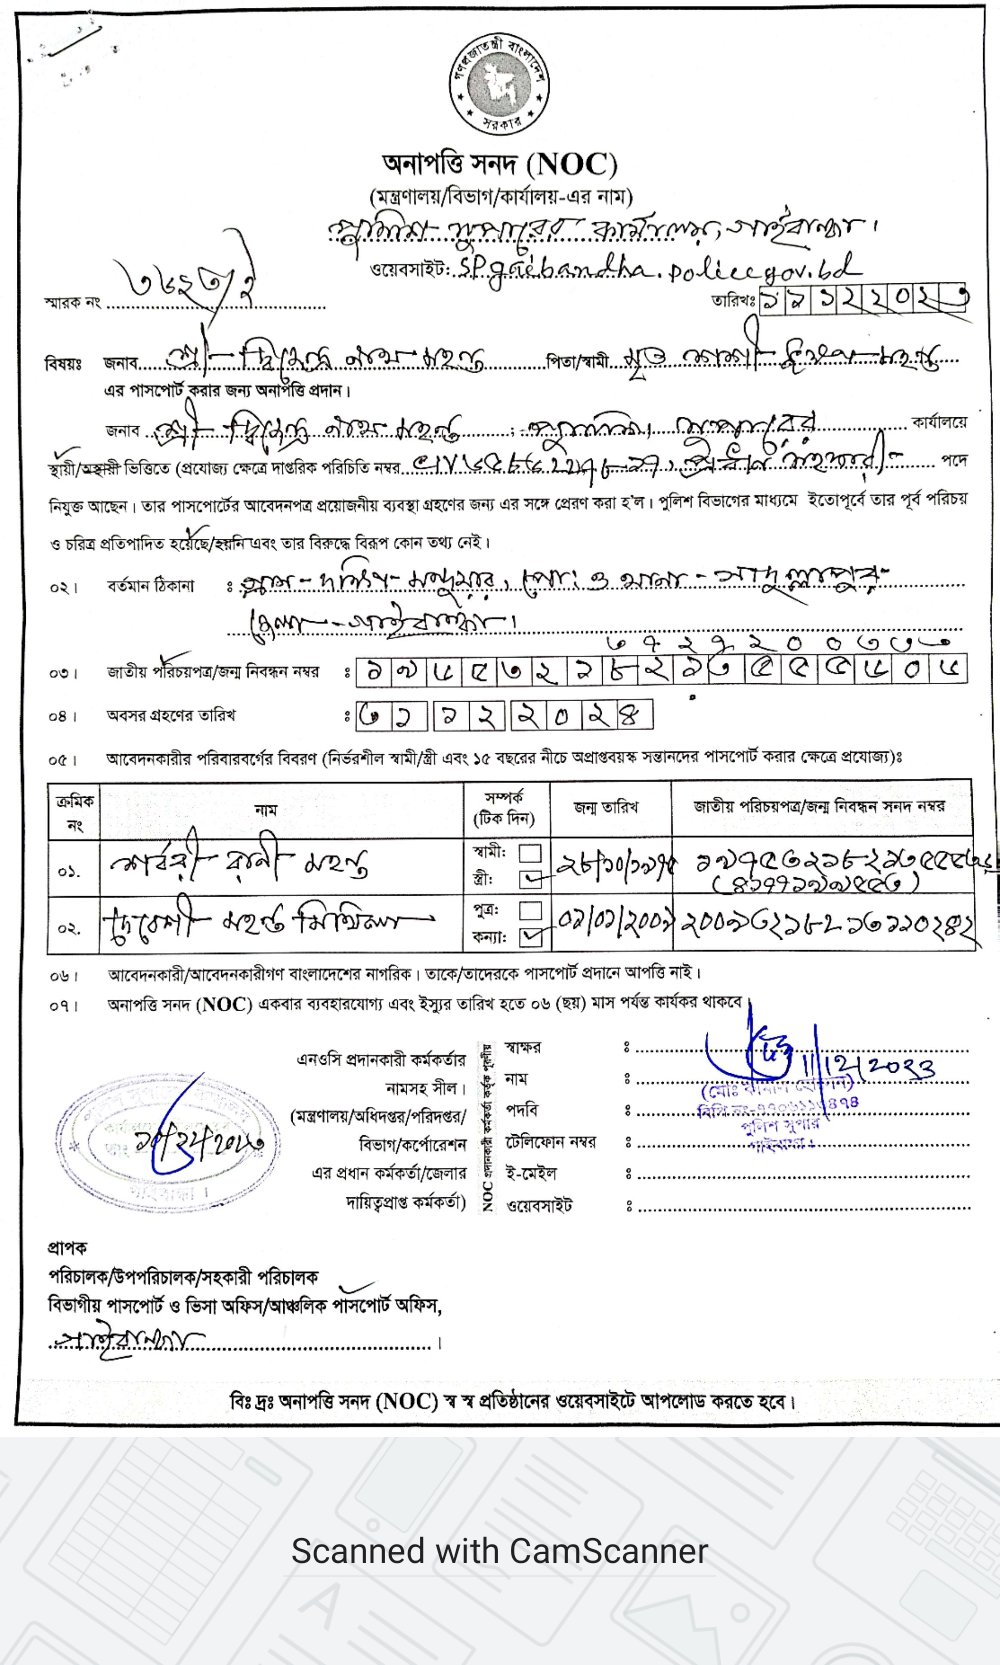 গণপ্রজাতন্ত্রী বাংলাদেশ
সরকার
অনাপত্তি সনদ (NOC)
(মন্ত্রণালয়/বিভাগ/কার্যালয়-এর নাম)
পুলিশ সুপারের কার্যালয়, গাইবান্ধা।
ওয়েবসাইট: SPgaibandha.police.gov.bd
স্মারক নং
তারিখঃ ১১১২২০২৩
বিষয়ঃ জনাব শ্রী দ্বিজেন্দ্র নাথ মহন্ত পিতা/স্বামী মৃত শশী মহন্ত
এর পাসপোর্ট করার জন্য অনাপত্তি প্রদান।
জনাব শ্রী দ্বিজেন্দ্র নাথ মহন্ত, পুলিশ সুপারের কার্যালয়ে
স্থায়ী/অস্থায়ী ভিত্তিতে (প্রযোজ্য ক্ষেত্রে দাপ্তরিক পরিচিতি নম্বর প্রধান সহকারী পদে
নিযুক্ত আছেন। তার পাসপোর্টের আবেদনপত্র প্রয়োজনীয় ব্যবস্থা গ্রহণের জন্য এর সঙ্গে প্রেরণ করা হ'ল। পুলিশ বিভাগের মাধ্যমে ইতোপূর্বে তার পূর্ব পরিচয়
ও চরিত্র প্রতিপাদিত হয়েছে/হয়নি এবং তার বিরুদ্ধে বিরূপ কোন তথ্য নেই।
০২। বর্তমান ঠিকানা : গ্রাম - দক্ষিণ মন্দুয়ার, পো: ও থানা - সাদুল্লাপুর
জেলা - গাইবান্ধা।
০৩। জাতীয় পরিচয়পত্র/জন্ম নিবন্ধন নম্বর :
০৪। অবসর গ্রহণের তারিখ : ৩১ ১২ ২০২৪
০৫। আবেদনকারীর পরিবারবর্গের বিবরণ (নির্ভরশীল স্বামী/স্ত্রী এবং ১৫ বছরের নীচে অপ্রাপ্তবয়স্ক সন্তানদের পাসপোর্ট করার ক্ষেত্রে প্রযোজ্য)ঃ
ক্রমিক নং নাম সম্পর্ক (টিক দিন) জন্ম তারিখ জাতীয় পরিচয়পত্র/জন্ম নিবন্ধন সনদ নম্বর
০১. শার্বরী রানী মহন্ত স্বামী: স্ত্রী: ২৮/১০/১৯৭৫
০২. দেবশ্রী মহন্ত মিথিলা পুত্র: কন্যা: ০১/০১/২০০৯
০৬। আবেদনকারী/আবেদনকারীগণ বাংলাদেশের নাগরিক। তাকে/তাদেরকে পাসপোর্ট প্রদানে আপত্তি নাই।
০৭। অনাপত্তি সনদ (NOC) একবার ব্যবহারযোগ্য এবং ইস্যুর তারিখ হতে ০৬ (ছয়) মাস পর্যন্ত কার্যকর থাকবে
এনওসি প্রদানকারী কর্মকর্তার
নামসহ সীল।
(মন্ত্রণালয়/অধিদপ্তর/পরিদপ্তর/
বিভাগ/কর্পোরেশন
এর প্রধান কর্মকর্তা/জেলার
দায়িত্বপ্রাপ্ত কর্মকর্তা)
NOC প্রদানকারী কর্মকর্তা কর্তৃক পূরণীয়
স্বাক্ষর : 11/12/2023
নাম : (মোঃ কামাল হোসেন)
পদবি :
পুলিশ সুপার
টেলিফোন নম্বর : গাইবান্ধা।
ই-মেইল :
ওয়েবসাইট :
গাইবান্ধা।
প্রাপক
পরিচালক/উপপরিচালক/সহকারী পরিচালক
বিভাগীয় পাসপোর্ট ও ভিসা অফিস/আঞ্চলিক পাসপোর্ট অফিস,
গাইবান্ধা।
বিঃ দ্রঃ অনাপত্তি সনদ (NOC) স্ব স্ব প্রতিষ্ঠানের ওয়েবসাইটে আপলোড করতে হবে।
Scanned with CamScanner